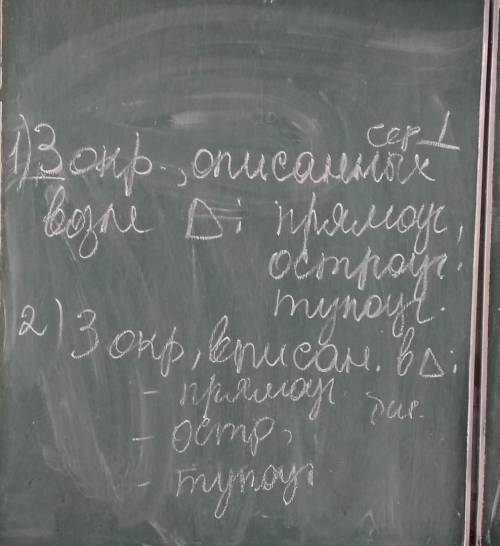 сер ⊥
1) 3 окр., описанных
возле Δ: прямоуг,
остроуг.
тупоуг.
2) 3 окр, вписан. в Δ:
- прямоуг
бис.
- остр,
- тупоуг